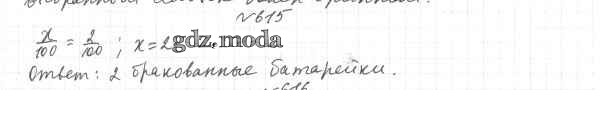 №615
x/100 = 2/100 ; x=2 gdz.moda
Ответ: 2 бракованные батарейки.